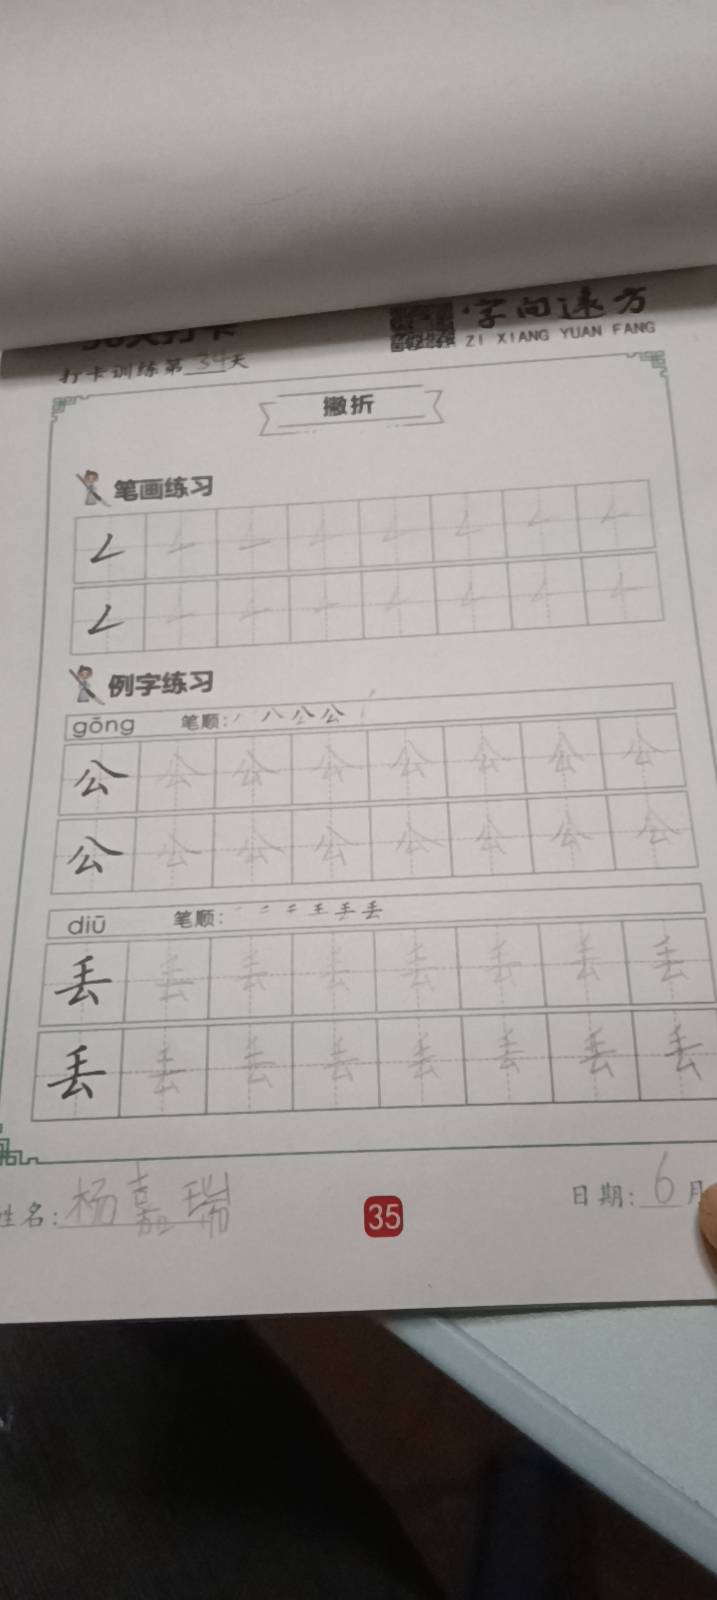 字向远方
ZI XIANG YUAN FANG
打卡训练第34天
撇折
笔画练习
例字练习
gōng 笔顺: 八 公 公
公 公 公 公 公 公 公 公
公 公 公 公 公 公 公 公
diū 笔顺:
丢 丢 丢 丢 丢 丢 丢 丢
丢 丢 丢 丢 丢 丢 丢 丢
姓名: 杨嘉瑞
35
日期: 6月